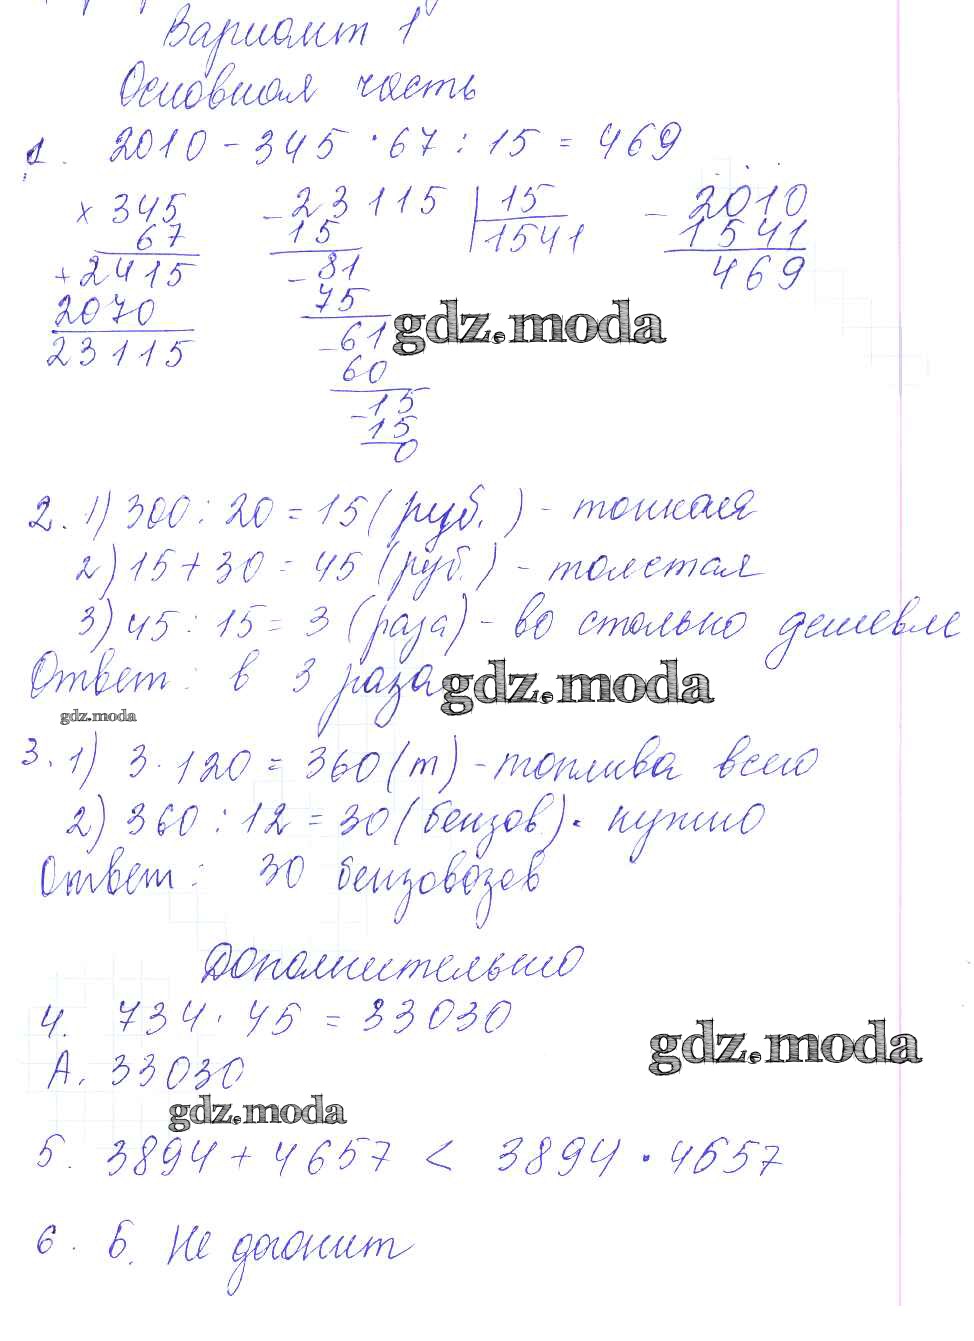 Вариант 1
Основная часть
1. 2010 - 345 · 67 : 15 = 469
× 345
67
+ 2415
2070
23115
- 23115 | 15
15 1541
- 81
75
- 61
60
- 15
15
0
- 2010
1541
469
gdz.moda
2. 1) 300 : 20 = 15 (руб.) - тонкая
2) 15 + 30 = 45 (руб.) - толстая
3) 45 : 15 = 3 (раза) - во столько дешевле
Ответ: в 3 раза
gdz.moda
gdz.moda
3. 1) 3 · 120 = 360 (т) - топлива всего
2) 360 : 12 = 30 (бензов) · нужно
Ответ: 30 бензовозов
Дополнительно
4. 734 · 45 = 33030
gdz.moda
А. 33030
gdz.moda
5. 3894 + 4657 < 3894 · 4657
6. Б. Не догонит